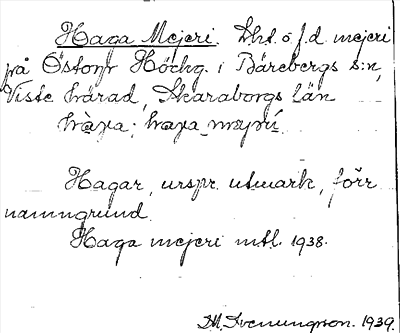 Haga Mejeri. Lht. o. f.d. mejeri
på Östorp Höchg. i Bärebergs s:n,
Viste härad, Skaraborgs län
Hagar, urspr. utmark, förr
namngrund.
Haga mejeri mtl. 1938.
M. Svenungson. 1939.